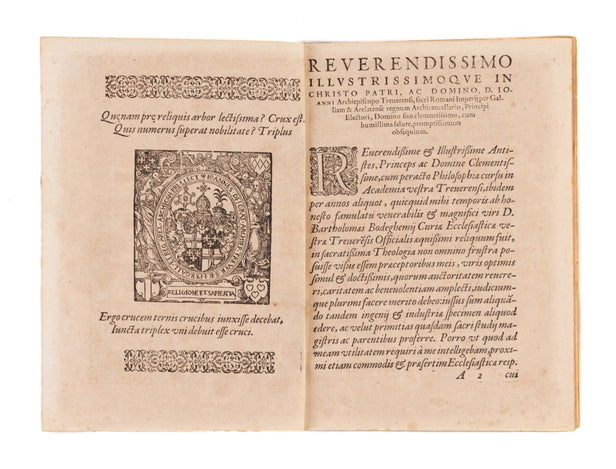 Quęnam prę reliquis arbor lectissima? Crux est.
Quis numerus superat nobilitate? Triplus
RELIGIONE ET SAPIENTIA
Ergo crucem ternis crucibus iunxisse decebat,
Iuncta triplex vni debuit esse cruci.
REVERENDISSIMO
ILLVSTRISSIMOQVE IN
CHRISTO PATRI, AC DOMINO, D. IO-
ANNI Archiepiscopo Treuerensi, sacri Romani Imperij per Gal-
liam & Arelatense regnum Archicancellario, Principi
Electori, Domino suo clementissimo, cum
humillima salute, promptissimum
obsequium.
REuerendissime & Illustrissime Anti-
stes, Princeps ac Domine Clementis-
sime, cum peracto Philosophiæ cursu in
Academia vestra Treuerensi, ibidem
per annos aliquot, quicquid mihi temporis ab ho-
nesto famulatu venerabilis & magnifici viri D.
Bartholomæi Bodeghemij Curiæ Ecclesiasticæ ve-
stra Treuerēsis Officialis æquissimi reliquum fuit,
in sacratissima Theologia non omnino frustra po-
suisse visus essem præceptoribus meis, viris optimis
simul & doctissimis, quorum auctoritatem reuere-
ri, caritatem ac beneuolentiam amplecti, iudicium-
que plurimi facere merito debeo: iussus sum aliquā-
do tandem ingenij & industriæ specimen aliquod
edere, ac velut primitias quasdam sacri studij ma-
gistris ac parentibus proferre. Porro vt quod ad
meam vtilitatem requiri à me intelligebam, proxi-
mi etiam commodis & præsertim Ecclesiasticæ reip.
A 2 cui